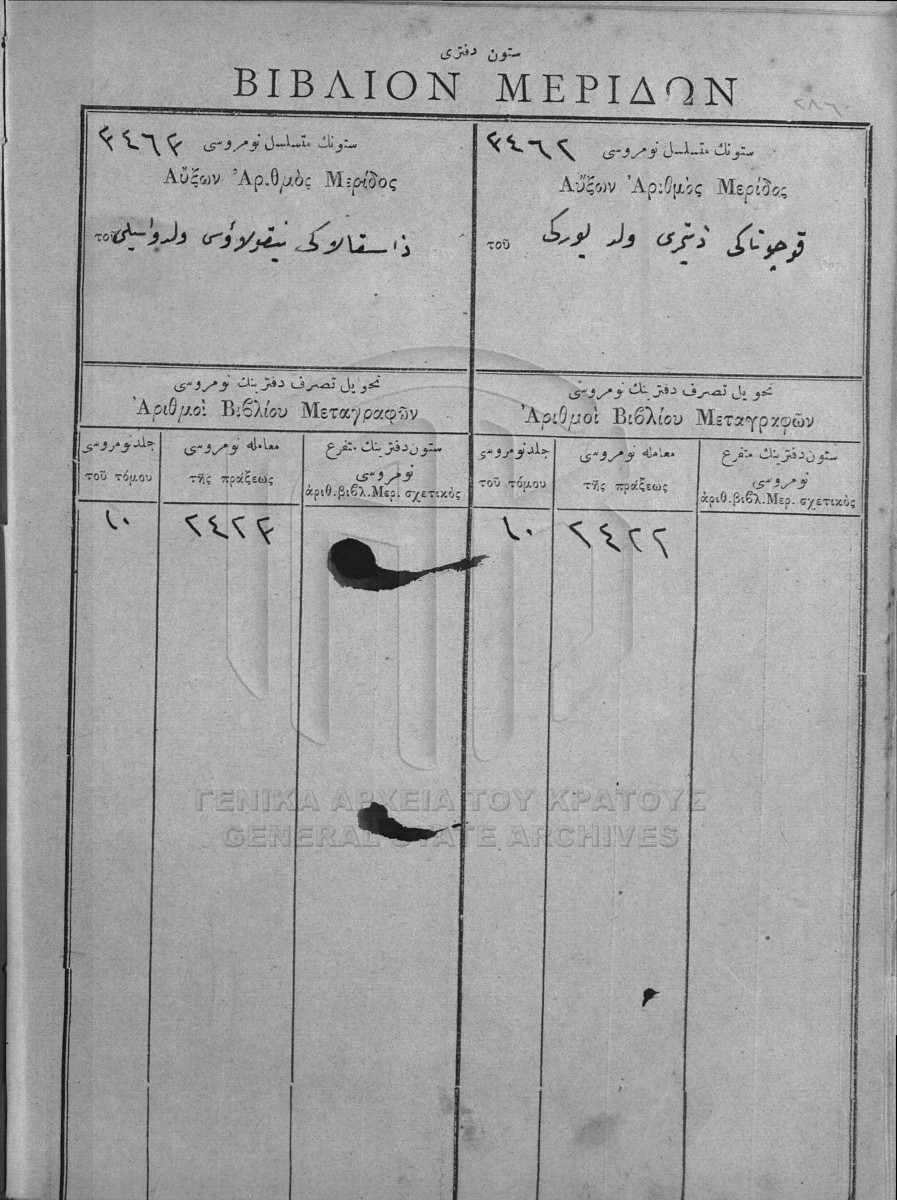 ستون دفتری
ΒΙΒΛΙΟΝ ΜΕΡΙΔΩΝ
٢٨٦
ستونك متسلسل نومروسی ٣٤٦٢
Αὔξων Ἀριθμὸς Μερίδος
τοῦ قوجوناكی ذیمتری ولد یوركی
تحویل تصرف دفترینك نومروسی
Ἀριθμοὶ Βιβλίου Μεταγραφῶν
ستون دفترینك متفرع نومروسی
ἀριθ. βιβλ. Μερ. σχετικὸς
معامله نومروسی
τῆς πράξεως
جلد نومروسی
τοῦ τόμου
٢٤٢٢
١٠
ستونك متسلسل نومروسی ٣٤٦٣
Αὔξων Ἀριθμὸς Μερίδος
τοῦ ذاسقالاكی نیقولاؤس ولد واسیلی
تحویل تصرف دفترینك نومروسی
Ἀριθμοὶ Βιβλίου Μεταγραφῶν
ستون دفترینك متفرع نومروسی
ἀριθ. βιβλ. Μερ. σχετικὸς
معامله نومروسی
τῆς πράξεως
جلد نومروسی
τοῦ τόμου
٢٤٢٣
١٠
ΓΕΝΙΚΑ ΑΡΧΕΙΑ ΤΟΥ ΚΡΑΤΟΥΣ
GENERAL STATE ARCHIVES